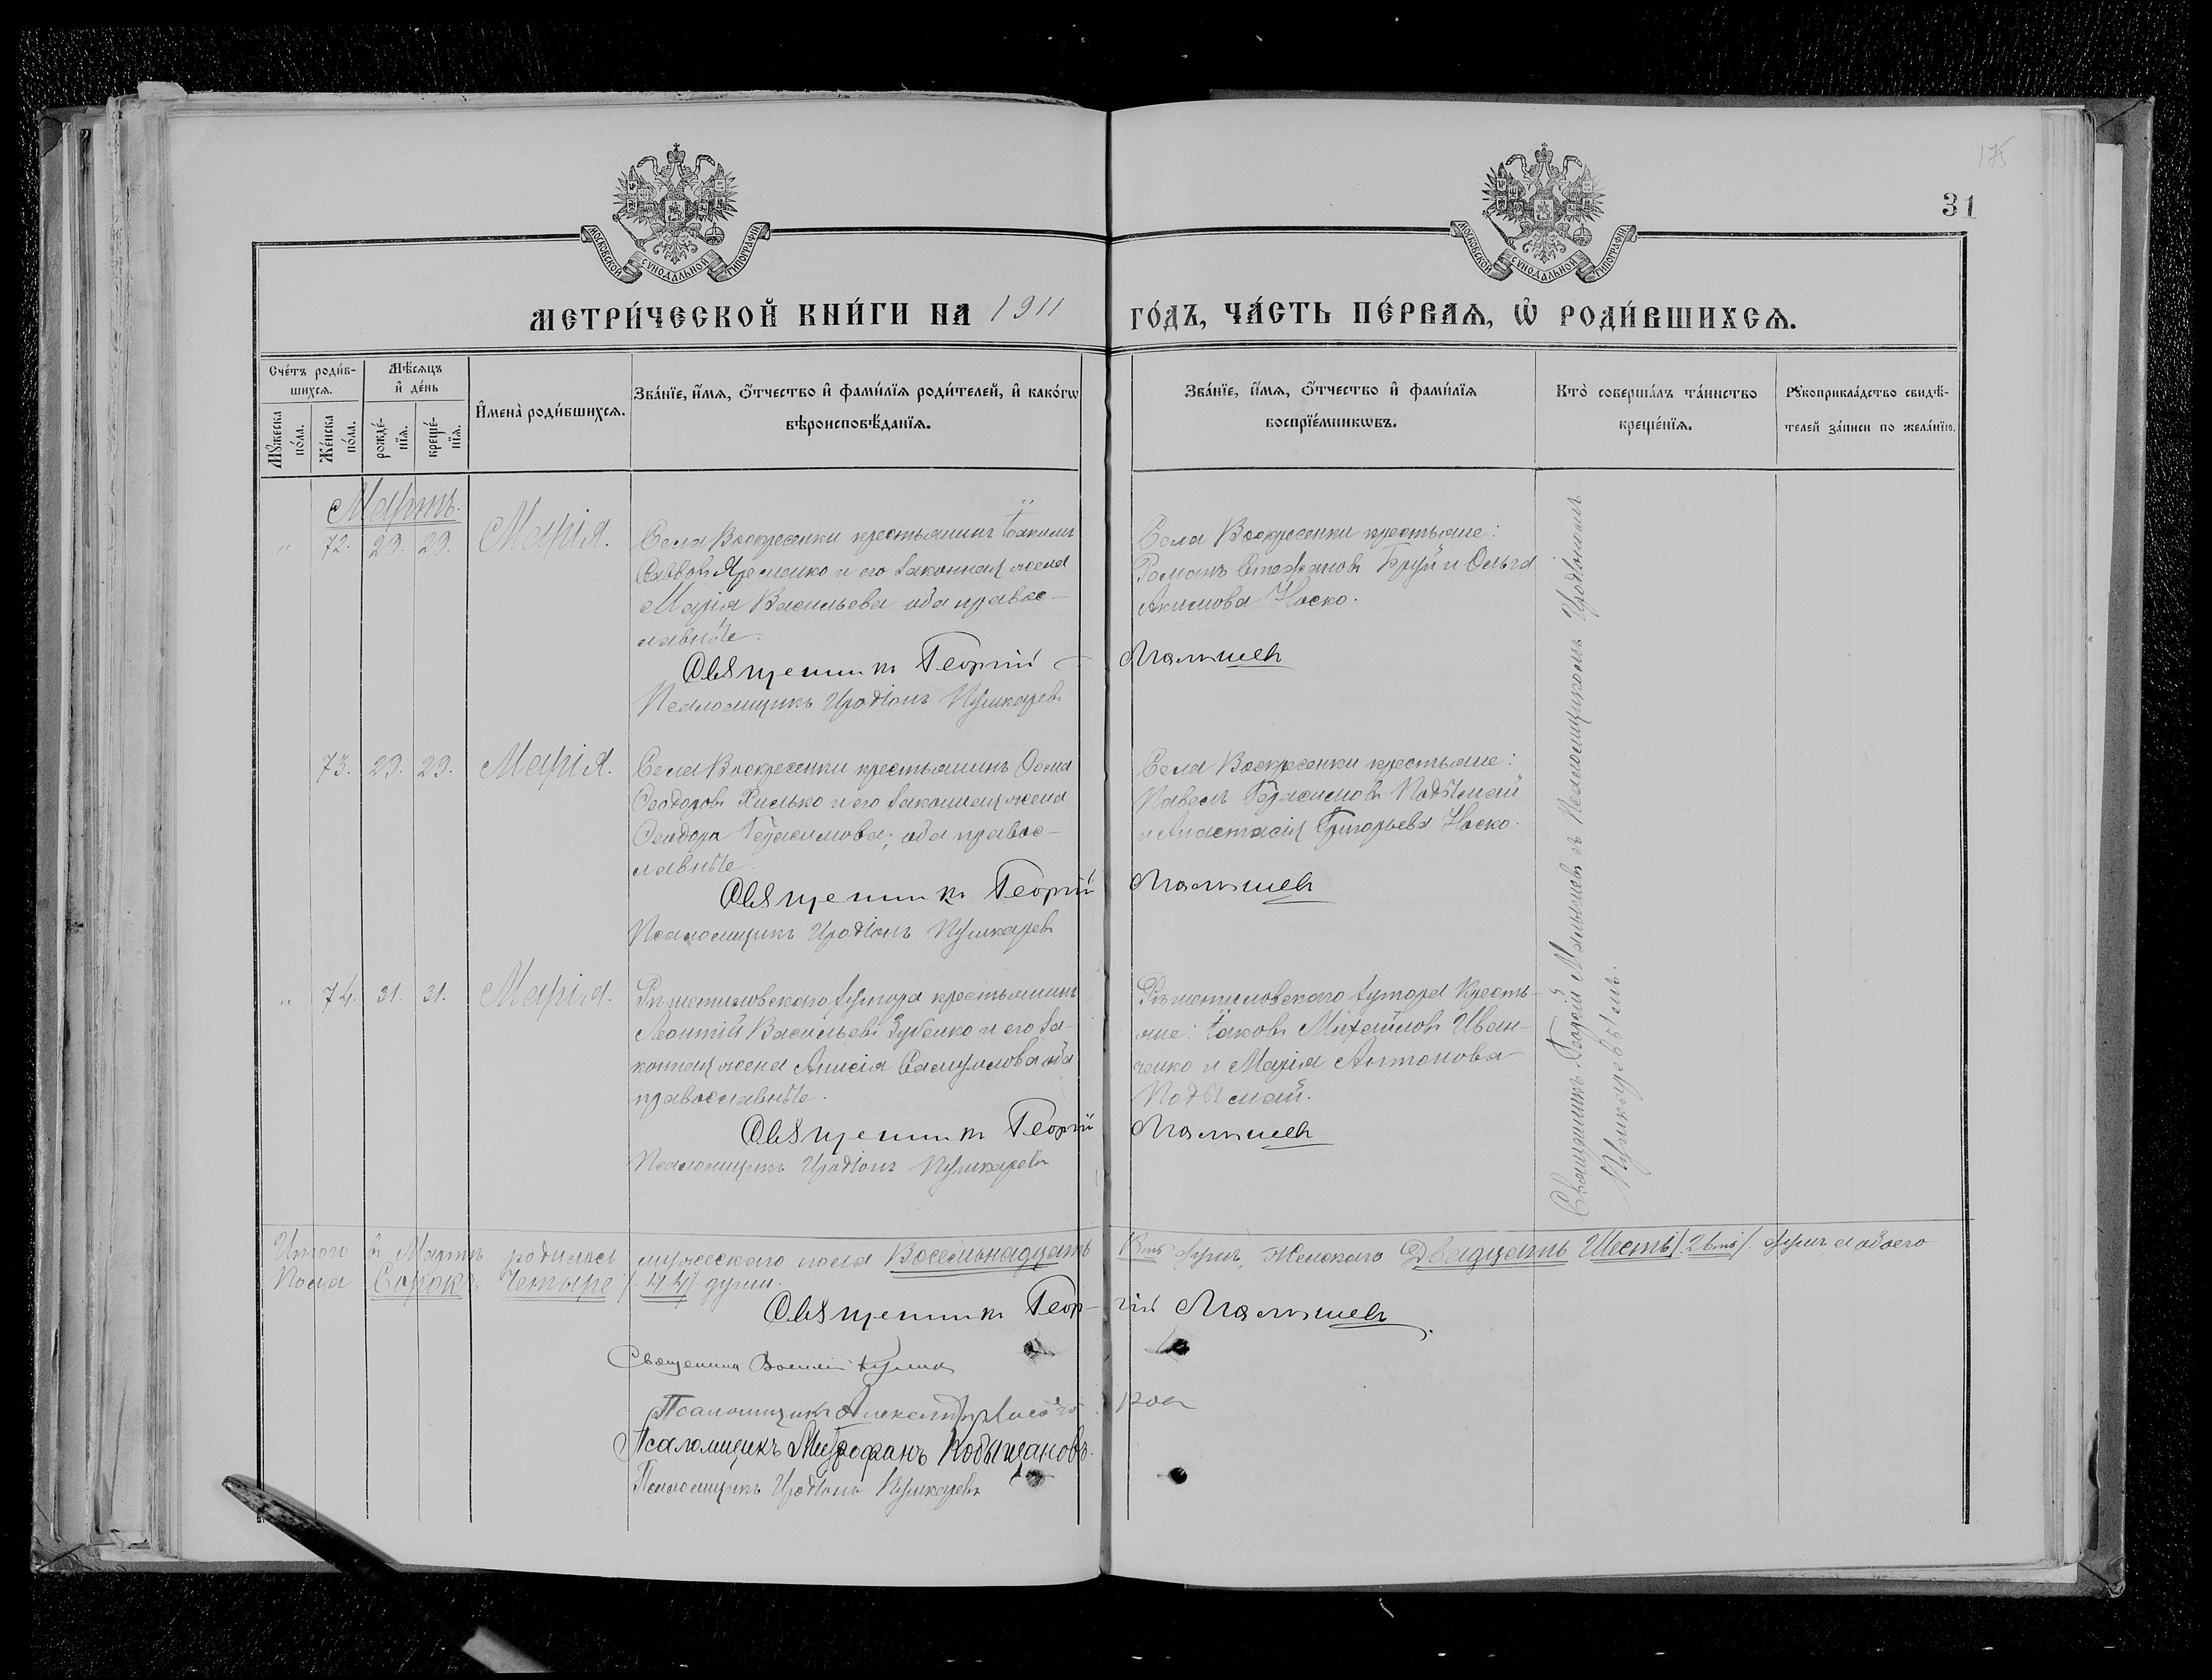 175
31
МОСКОВСКОЙ СѴНОДАЛЬНОЙ ТИПОГРАФІИ
МОСКОВСКОЙ СѴНОДАЛЬНОЙ ТИПОГРАФІИ
МЕТРИ́ЧЕСКОЙ КНИ́ГИ НА 1911
ГО́ДЪ, ЧА́СТЬ ПЕ́РВАѦ, Ѡ҆ РОДИ́ВШИХСѦ.
Сче́тъ роди́в-
шихсѧ.
Мꙋ́жеска по́ла.
Же́нска по́ла.
Мѣ́сѧцъ
и҆ де́нь
рожде́-
нїѧ.
креще́-
нїѧ.
И҆мена̀ роди́вшихсѧ.
Зва́нїе, и҆́мѧ, ѻ҆́тчество и҆ фами́лїѧ роди́телей, и҆ како́гѡ
вѣроисповѣ́данїѧ.
Зва́нїе, и҆́мѧ, ѻ҆́тчество и҆ фами́лїѧ
воспрїе́мникѡвъ.
Кто̀ соверша́лъ та́инство
креще́нїѧ.
Рꙋкоприкла́дство свидѣ́-
телей за́писи по жела́нїю.
Мартъ.
" 72. 29. 29. Марія.
Села Воскресенки крестьянинъ Іакимъ
Саввовъ Яременко и его законная жена
Марія Васильева оба правос-
лавные.
Священникъ Георгій
Псаломщикъ Иродіонъ Пушкаревъ
Села Воскресенки крестьяне:
Романъ Стефановъ Бруй и Ольга
Акимова Носко.
Малышевъ
73. 29. 29. Марія.
Села Воскресенки крестьянинъ
Феодоровъ Хилько и его законная жена
Феодора Герасимова; оба правос-
лавные
Священникъ Георгій
Псаломщикъ Иродіонъ Пушкаревъ
Села Воскресенки крестьяне:
Павелъ Герасимовъ Подымай
и Анастасія Григорьева Носко.
Малышевъ
" 74. 31. 31. Марія.
Рѣшетиловскаго хутора крестьянинъ
Леонтій Васильевъ Зубенко и его за-
конная жена Анисія Самуилова оба
православные.
Священникъ Георгій
Псаломщикъ Иродіонъ Пушкаревъ
Рѣшетиловскаго хутора Кресть-
яне: Іаковъ Михайловъ Иван-
ченко и Марія Антонова
Подымай.
Малышевъ
Священникъ Георгій Малышевъ съ Псаломщикомъ Иродіономъ
Пушкаревымъ.
Итого въ Мартѣ родилось мужескаго пола Восемьнадцать 18ть душъ, Женскаго Двадцать Шесть /26ть/. душъ, а обоего
Пола Сорокъ Четыре /44/. души.
Священникъ Геор- гій Малышевъ
Священникъ Василій
Псаломщикъ Александръ
Псаломщикъ Митрофанъ Кобыщановъ.
Псаломщикъ Иродіонъ Пушкаревъ